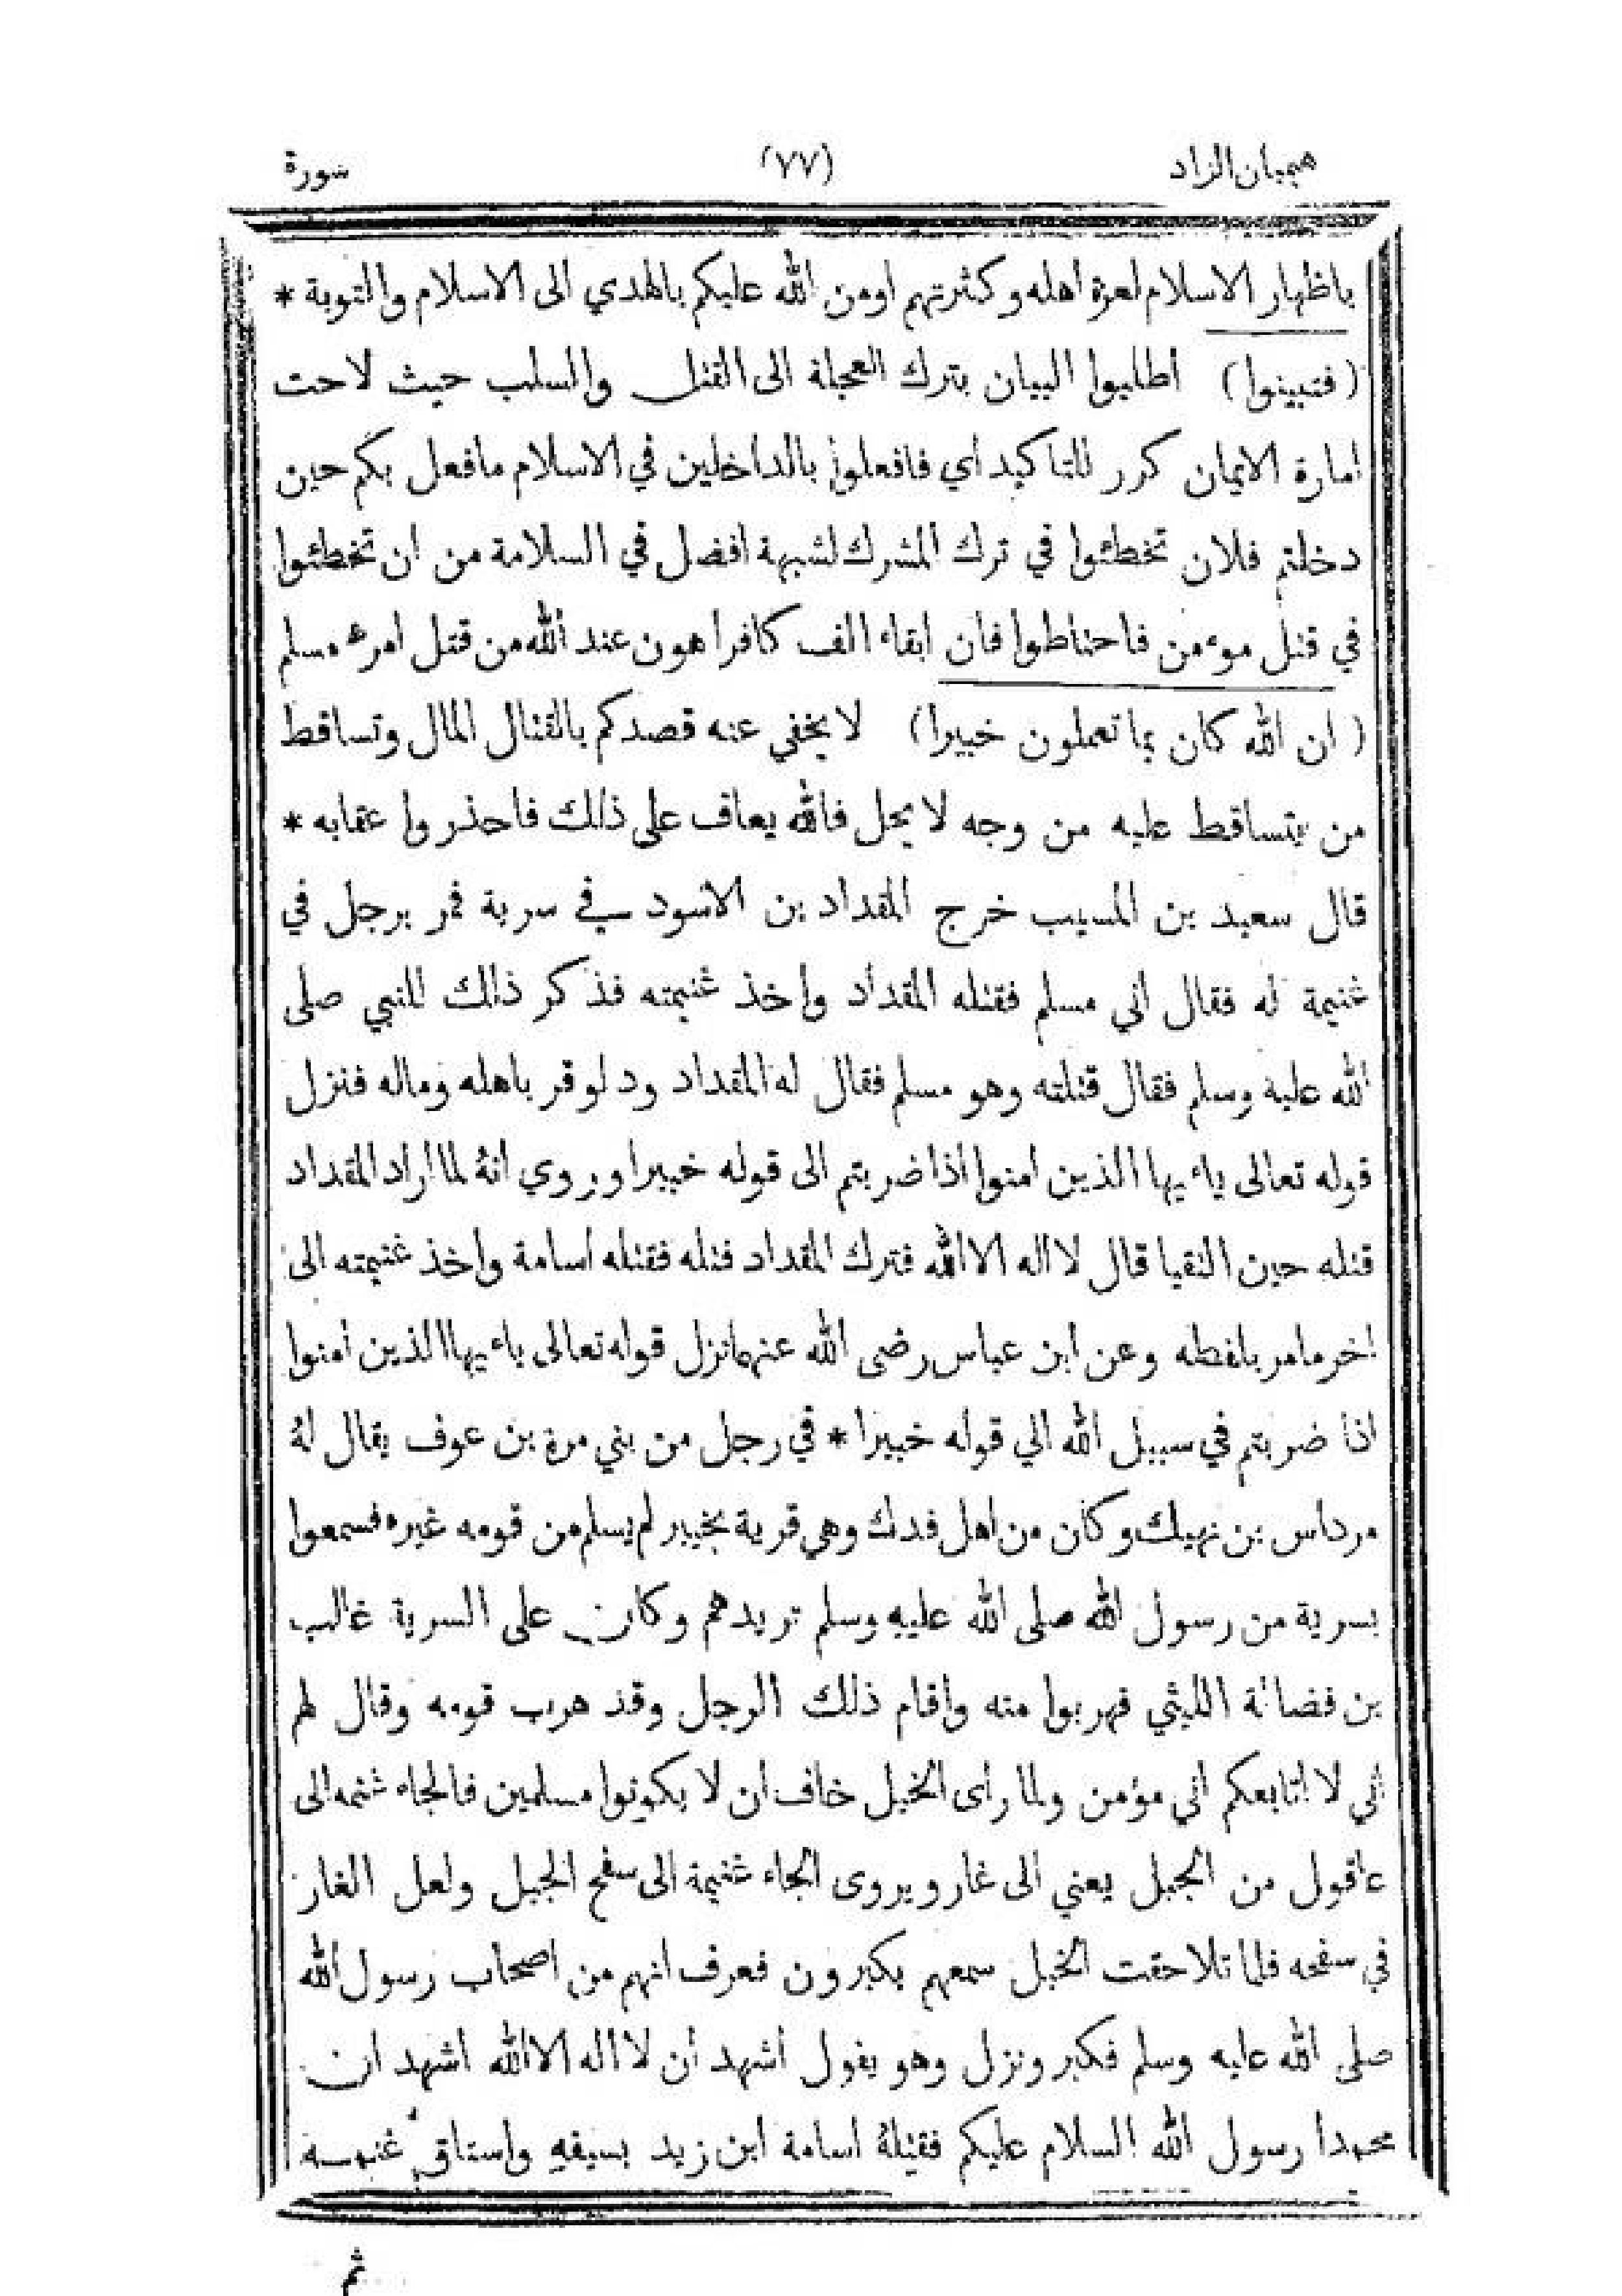 هميان الزاد (٧٧) سورة
باظهار الاسلام لعزة اهله وكثرتهم اومن الله عليكم بالهدي الى الاسلام والتوبة *
(فتبينوا) اطلبوا البيان بترك العجلة الى القتل والسلب حيث لاحت
امارة الايمان كرر للتاكيد اي فافعلوا بالداخلين في الاسلام مافعل بكم حين
دخلتم فلان تخطئوا في ترك المشرك لشبهة افضل في السلامة من ان تخطئوا
في قتل موءمن فاحتاطوا فان ابقاء الف كافر اهون عند الله من قتل امرء مسلم
(ان الله كان بما تعملون خبيرا) لا يخفي عنه قصدكم بالقتال المال وتساقط
من يتساقط عليه من وجه لا يحل فالله يعاف على ذلك فاحذروا عقابه *
قال سعيد بن المسيب خرج المقداد بن الاسود في سرية فمر برجل في
غنيمة له فقال اني مسلم فقتله المقداد واخذ غنيمته فذكر ذلك للنبي صلى
الله عليه وسلم فقال قتلته وهو مسلم فقال له المقداد ود لو فر باهله وماله فنزل
قوله تعالى ياءيها الذين امنوا اذا ضربتم الى قوله خبيرا وروي انه لما اراد المقداد
قتله حين التقيا قال لا اله الا الله فترك المقداد قتله فقتله اسامة واخذ غنيمته الى
اخر مامر بلفظه وعن ابن عباس رضى الله عنهما نزل قوله تعالى ياءيها الذين امنوا
اذا ضربتم في سبيل الله الي قوله خبيرا * في رجل من بني مرة بن عوف يقال له
مرداس بن نهيك وكان من اهل فدك وهي قرية بخيبر لم يسلم من قومه غيره فسمعوا
بسرية من رسول الله صلى الله عليه وسلم تريدهم وكان على السرية غالب
بن فضالة الليثي فهربوا منه واقام ذلك الرجل وقد هرب قومه وقال لهم
اني لا اتابعكم اني مؤمن ولما رأى الخيل خاف ان لا يكونوا مسلمين فالجاء غنمه الى
عاقول من الجبل يعني الى غار ويروى الجاء غنيمة الى سفح الجبل ولعل الغار
في سفحه فلما تلاحقت الخيل سمعهم يكبرون فعرف انهم من اصحاب رسول الله
صلى الله عليه وسلم فكبر ونزل وهو يقول اشهد أن لا اله الا الله اشهد ان
محمدا رسول الله السلام عليكم فقتله اسامة ابن زيد بسيفه واستاق غنمه
ثم